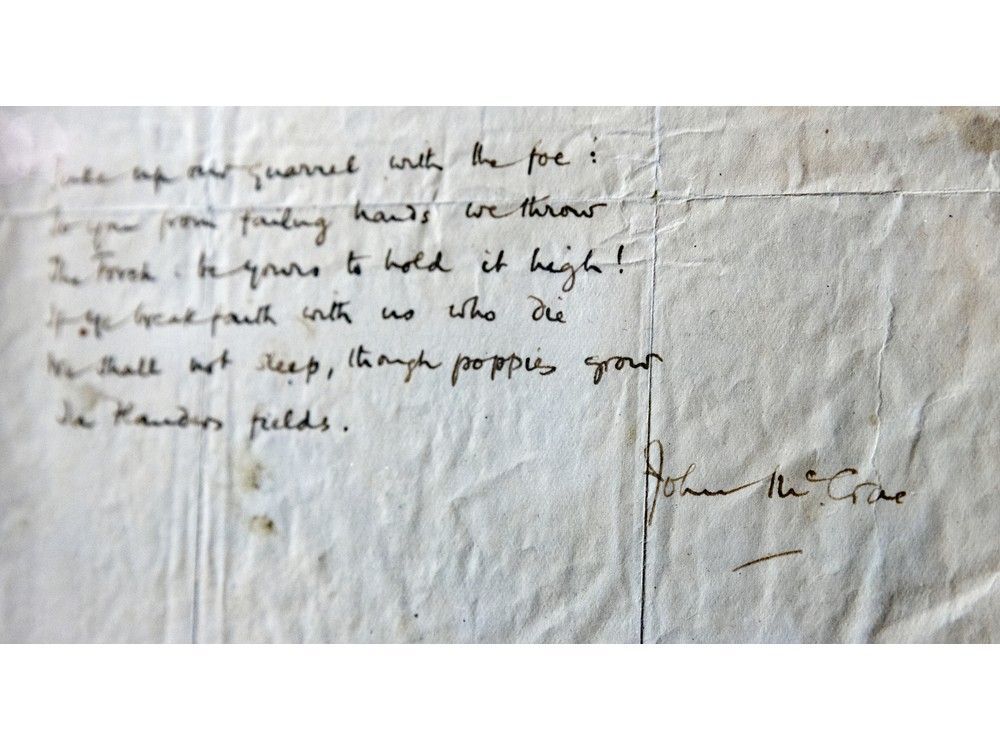 Take up our quarrel with the foe :
To you from failing hands we throw
The Torch - be yours to hold it high!
If ye break faith with us who die
We shall not sleep, though poppies grow
In Flanders fields.
John McCrae